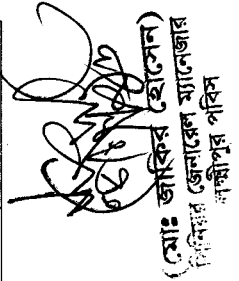 (মোঃ জাকির হোসেন)
সিনিয়র জেনারেল ম্যানেজার
লক্ষ্মীপুর পবিস